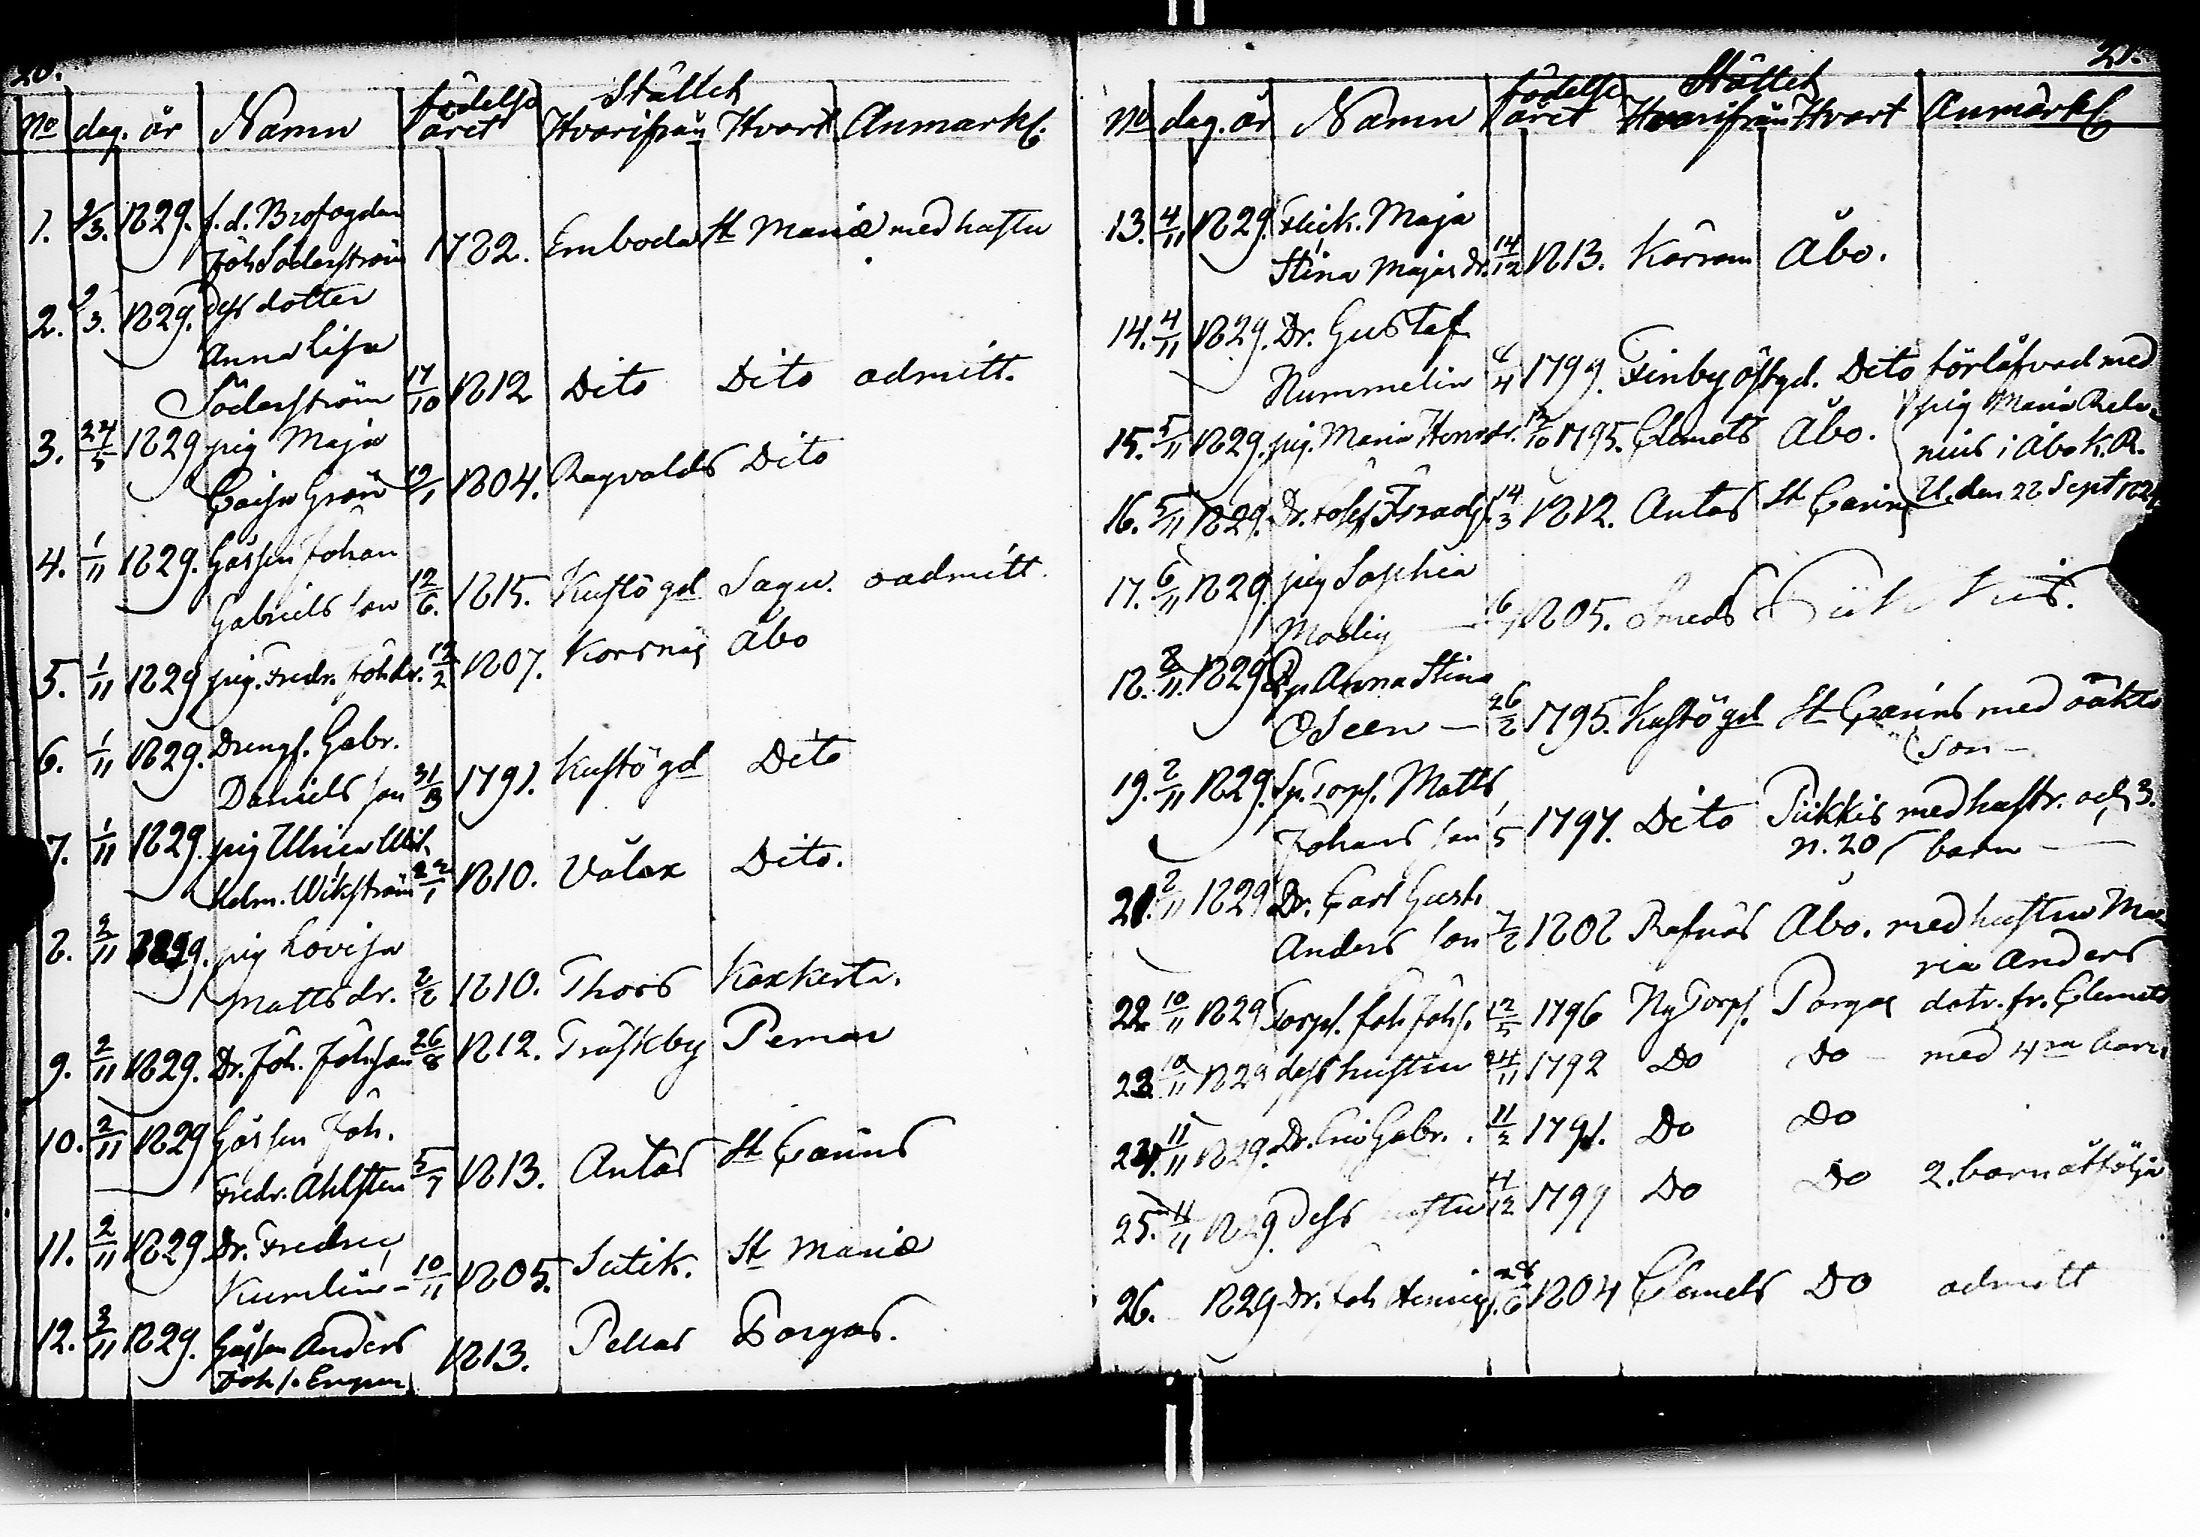 20.
födelse Stället
No dag. år Namn året Hvarifrån Hvart Anmärk.
1. 9/3. 1829. f.d. Brofogden
Joh Söderström 1782. Emboda St Mariæ med hustu
2. 9/3. 1829. dess dotter
Anna Lisa
Söderström 17/10 1812 Dito Dito admitt.
3. 24/5 1829 pig Maja
Caisa Grön 1804. Ragvalds Dito
4. 1/11 1829. Gossen Johan
Gabriels son 12/6. 1815. Kustö gd Sagu. oadmitt.
5. 1/11 1829 pig. Fredr. Joh dr. 12/2 1807. Korsnäs Åbo
6. 1/11 1829. Drengs. Gabr.
Daniels son 1791. Kustö gd Dito
7. 1/11 1829. pig Ulrica Wil.
helm. Wikström 22/1 1810. Vålax Dito.
8. 2/11 1829. pig Lovisa
Matts dr. 2/2 1810. Thors Kaxkerta.
9. 2/11 1829. Dr. Joh. Johsson 26/8 1812. Träskby Pemar
10. 2/11 1829 Gossen Joh.
Fredr. Ahlsten 5/7 1813. Antas St Carins
11. 2/11 1829 Dr. Fredric
Kumlin – 10/11 1805. Sutik. St Mariæ
12. 3/11 1829. Gossen Anders
Joh s. 1813. Pellas Pargas.
21.
födelse Stället
No dag. år Namn året Hvarifrån Hvart Anmärk
13. 4/11 1829. Flick. Maja
Stina Majas dr. 14/12 1813. Kärram Åbo.
14. 4/11 1829. Dr. Gustaf
Nummelin 4/4 1799. Finby östgd. Dito förlåfvad med
15. 5/11 1829. pig. Maria Henr dr. 1795. Clemets Åbo. pig Maria Rele-
nius i Åbo K. R.
16. 5/11 1829. Dr. Israels 14/3 1812. Antas St Carins U. den 22 Sept 182
17. 6/11 1829. pig Sophia
Modig 1805. Smeds Piikkis.
18. 8/11. 1829 Pig Anna Stina
Oseen — 26/2 1795. Kustö gd St Carins med oäkta
son –
19. 2/11 1829. Sp. Torp. Matts
Johans son 5 1797. Dito Piikkis med hustr. och 3.
n. 20 barn —
21. 2/11 1829 Dr. Carl Gust.
Anders son 7/2 1802 Rafnäs Åbo. med hustru Ma-
ria Anders
22. 10/11 1829 Torp. Joh Johs. 12/5 1796 Ny Torp. Pargas dotr. fr. Clemets
23. 10/11 1829 dess hustru 24/11 1792 Do Do – med 4ra barn
24. 11/11 1829. Dr. Eric Gabr. . 11/2 1791. Do Do
25. 11/11 1829. Dess hustru 1797 Do Do 2. barn åtfölja
26. 1829 Dr. Joh Henrics. 1804 Clemets Do admitt